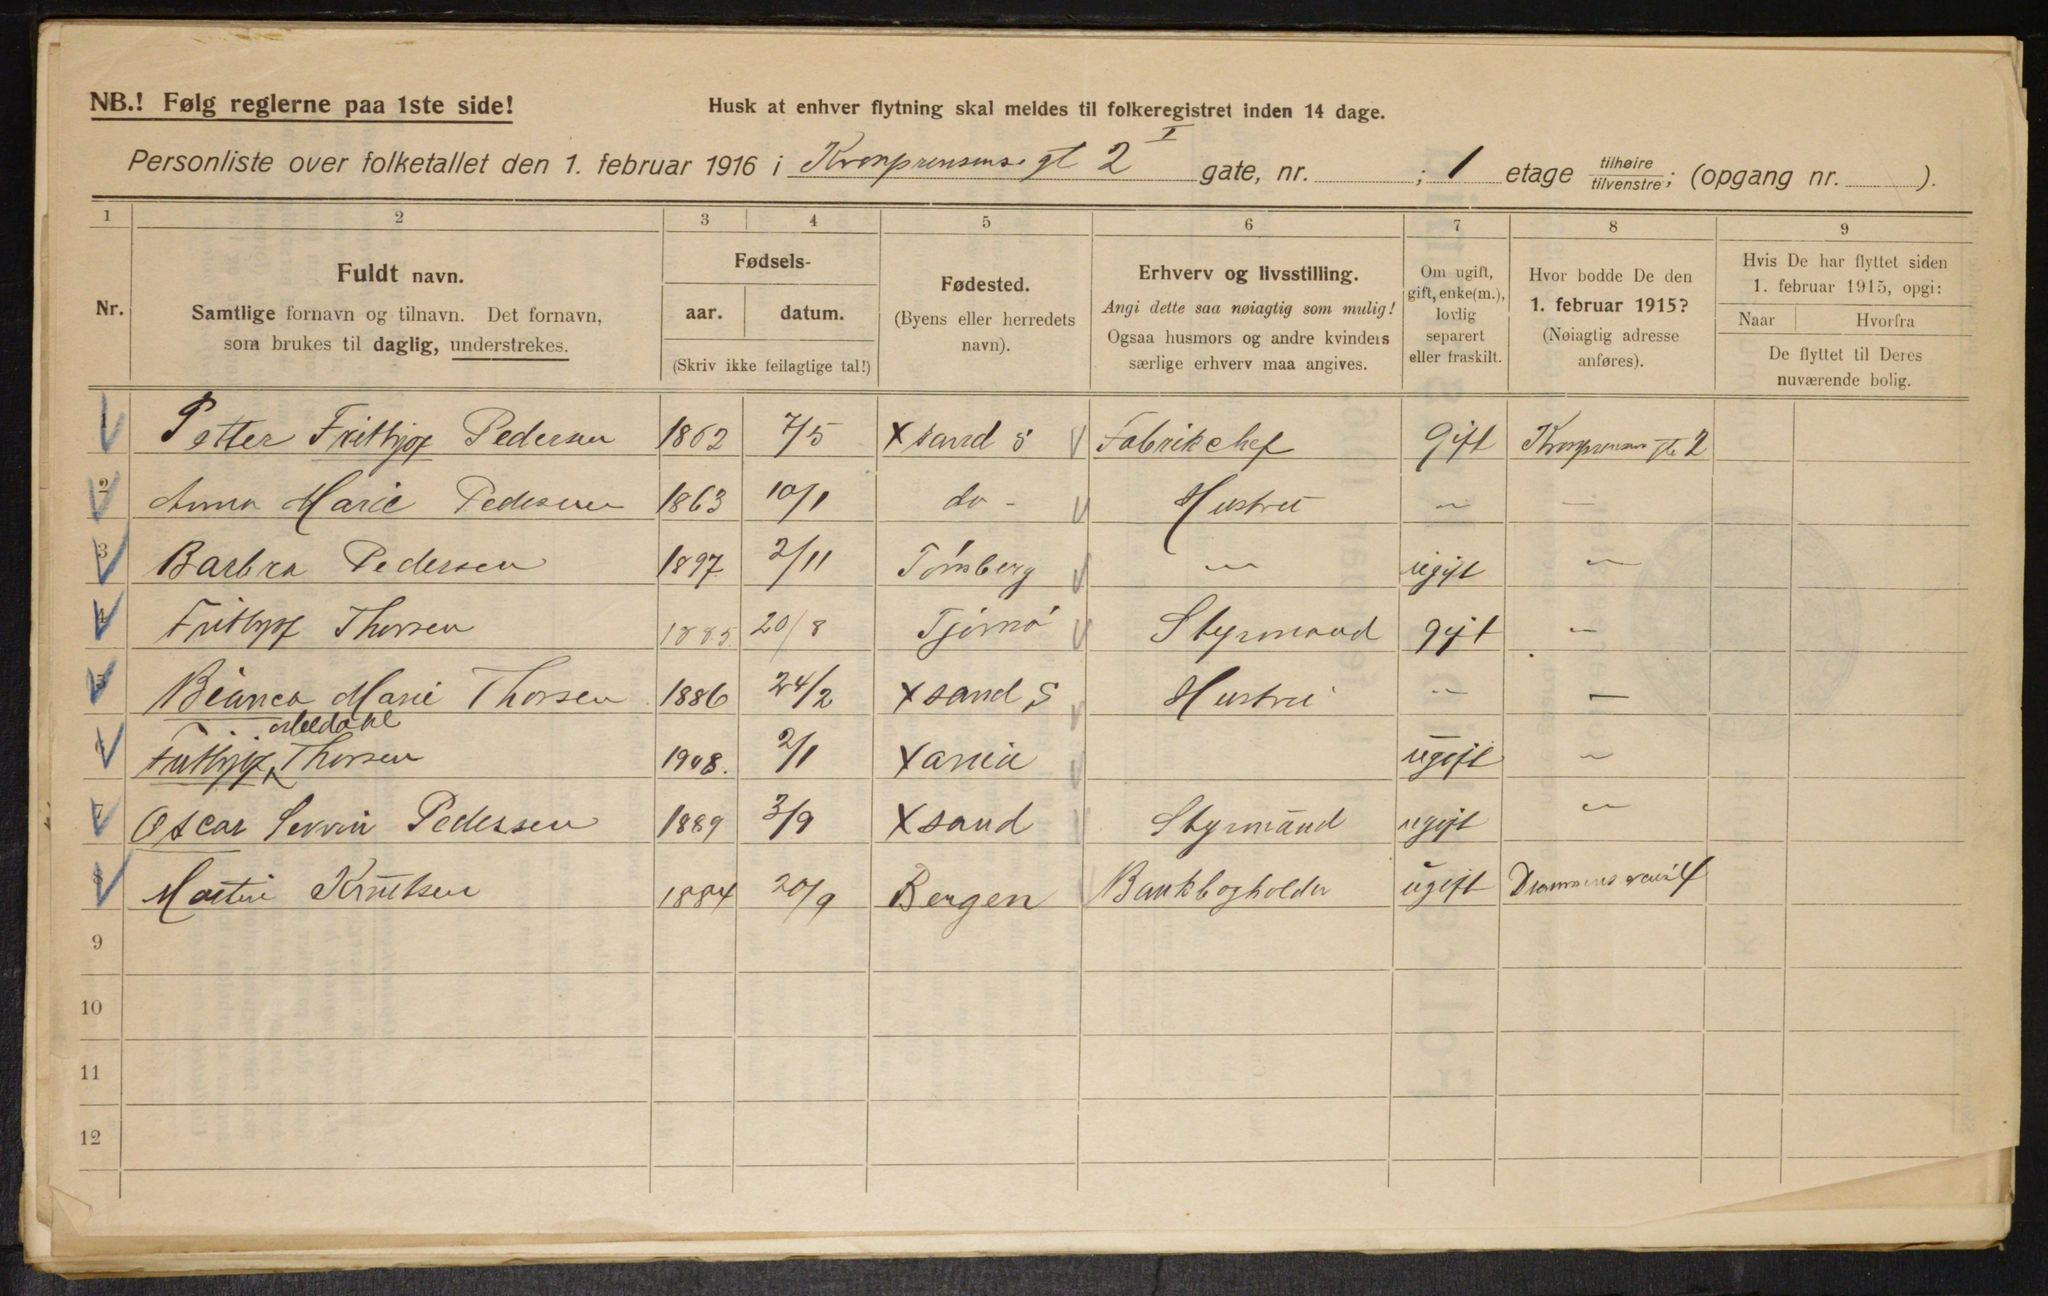 NB.! Følg reglerne paa 1ste side!
Husk at enhver flytning skal meldes til folkeregistret inden 14 dage.
Personliste over folketallet den 1. februar 1916 i Kronprensens gt 2 I gate, nr. ; 1 etage tilhøire tilvenstre; (opgang nr. ).
1 2 3 4 5 6 7 8 9
Nr.
Fuldt navn.
Samtlige fornavn og tilnavn. Det fornavn,
som brukes til daglig, understrekes.
Fødsels-
aar. datum.
(Skriv ikke feilagtige tal!)
Fødested.
(Byens eller herredets
navn).
Erhverv og livsstilling.
Angi dette saa nøiagtig som mulig!
Ogsaa husmors og andre kvinders
særlige erhverv maa angives.
Om ugift,
gift, enke(m.),
lovlig
separert
eller fraskilt.
Hvor bodde De den
1. februar 1915?
(Nøiagtig adresse
anføres).
Hvis De har flyttet siden
1. februar 1915, opgi:
Naar Hvorfra
De flyttet til Deres
nuværende bolig.
1 Petter Frithjof Pedersen 1862 7/5 Xsand S Fabrikchef gift Kronprensens gt 2
2 Anna Marie Pedersen 1863 10/1 do - Hustru — —
3 Barbra Pedersen 1897 2/11 Tønsberg — ugift —
4 Frithjof Thorsen 1885. 20/8 Tjømø Styrmand gift —
5 Bianca Marie Thorsen 1886 24/2 Xsand S Hustru — —
6 Frithjof Thorsen 1908. 2/1 Xania ugift —
7 Oscar Pedersen 1889 3/9 Xsand Styrmand ugift —
8 Martin Knutsen 1884 20/9 Bergen Bankbogholder ugift Drammensveien 4
9
10
11
12